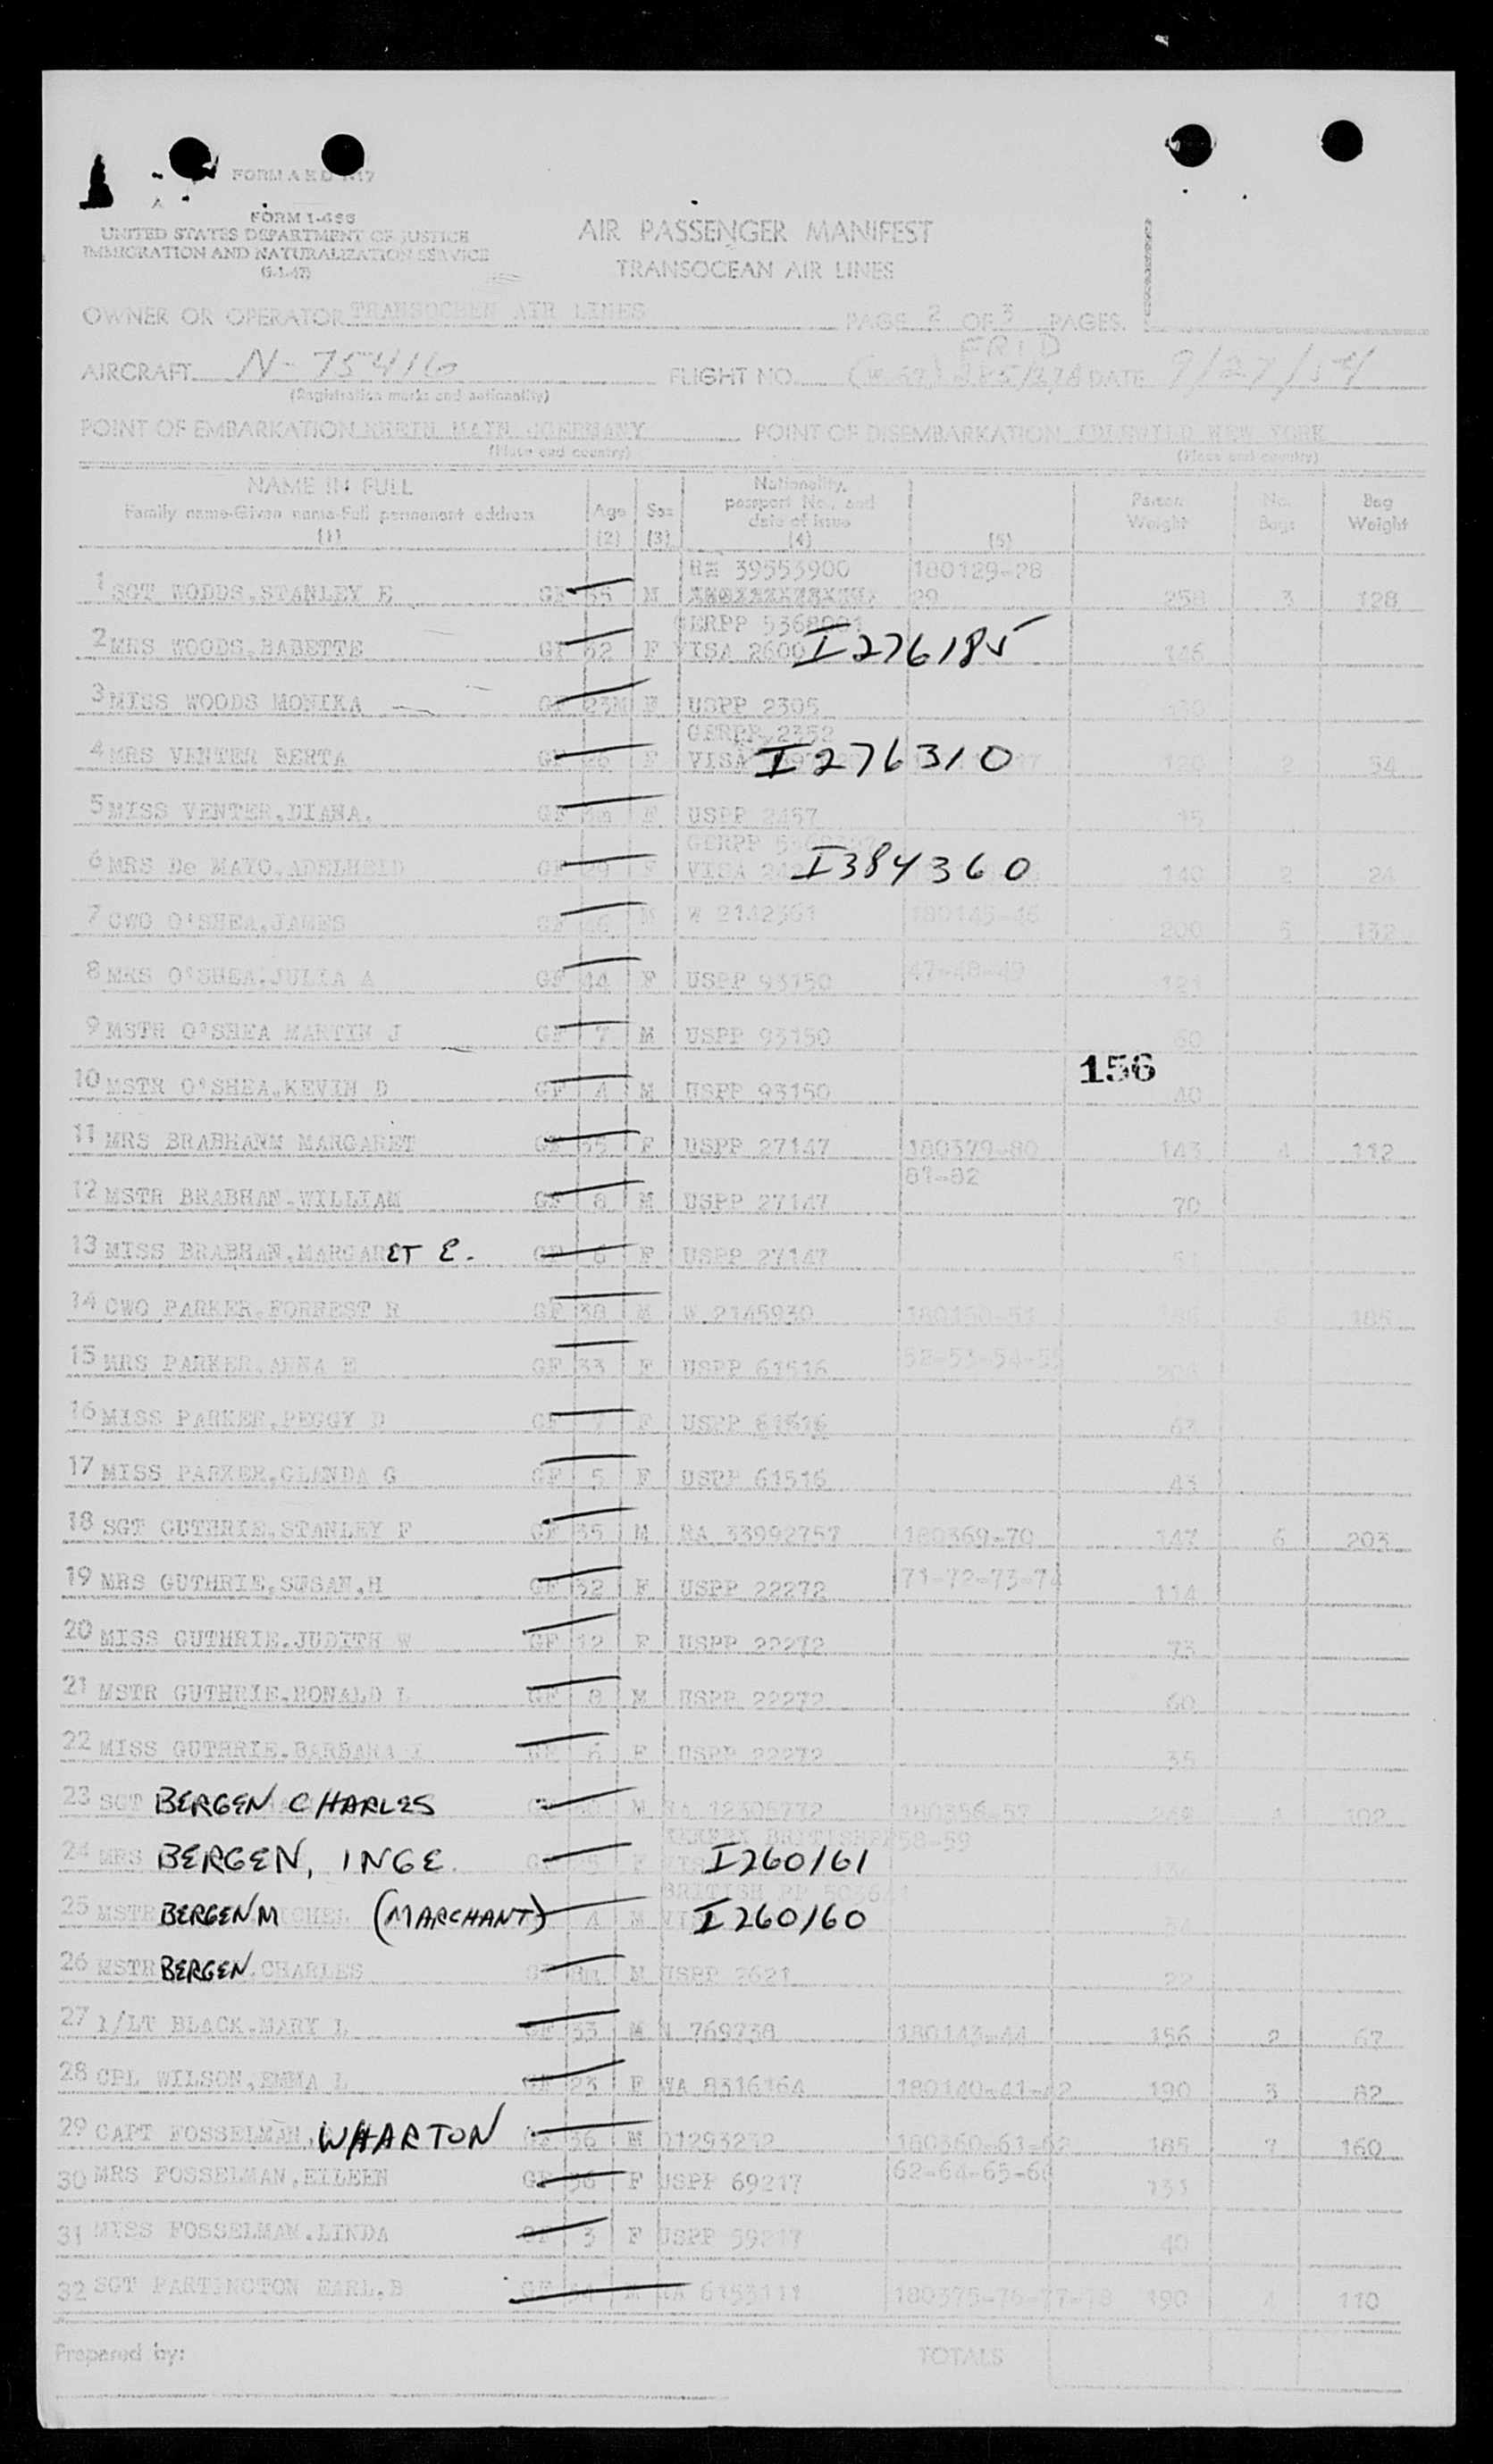 FORM I-466
UNITED STATES DEPARTMENT OF JUSTICE
IMMIGRATION AND NATURALIZATION SERVICE
AIR PASSENGER MANIFEST
TRANSOCEAN AIR LINES
OWNER OR OPERATOR TRANSOCEAN AIR LINES PAGE 2 OF 3 PAGES
AIRCRAFT N-75416 FLIGHT NO. DATE 9/27/54
(Registration marks and nationality)
POINT OF EMBARKATION RHEIN MAIN GERMANY POINT OF DISEMBARKATION IDLEWILD NEW YORK
(Place and country) (Place and country)
NAME IN FULL Family name-Given name-Full permanent address (1) Age (2) Sex (3) Nationality, passport No. and date of issue (4) (5) Passn. Weight No. Bags Bag Weight
39553900 180129-28
1 SGT WOODS,STANLEY E GF 35 M 29 258 3 128
GERPP
2 MRS WOODS,BABETTE GF 32 F VISA I276185 146
3 MISS WOODS MONIKA GF 23M F USPP 2305
GERPP 2352
4 MRS VENTER BERTA GF 26 F VISA I276310 120 2 54
5 MISS VENTER,DIANA. GF F USPP 2457 15
GERPP
6 MRS De MAYO,ADELHEID GF 29 F VISA I384360 140 2 24
7 CWO O'SHEA,JAMES GF 46 M W 2142361 180145-46 200 5 132
8 MRS O'SHEA,JULIA A GF 44 F USPP 93150 47-48-49 121
9 MSTR O'SHEA MARTIN J GF 7 M USPP 93150 60
156
10 MSTR O'SHEA,KEVIN D GF 4 M USPP 93150 40
11 MRS BRABHANM MARGARET GF 35 F USPP 27147 180379-80 143 4 112
81-82
12 MSTR BRABHAN.WILLIAM GF 8 M USPP 27147 70
13 MISS BRABHAN,MARGARET E. GF 6 F USPP 27147 51
14 CWO PARKER,FORREST R GF 38 M W 2145930 180150-51 185
15 MRS PARKER,ANNA E GF 33 F USPP 61516 52-53-54-55
16 MISS PARKER,PEGGY D GF 7 F USPP 61516 63
17 MISS PARKER,GLANDA G GF 5 F USPP 61516 43
18 SGT GUTHRIE,STANLEY F GF 35 M RA 33992757 180369-70 147 6 203
19 MRS GUTHRIE,SUSAN,H GF 32 F USPP 22272 71-72-73-74 114
20 MISS GUTHRIE.JUDITH W GF 12 F USPP 22272 73
21 MSTR GUTHRIE.RONALD L GF 8 M USPP 22272 60
22 MISS GUTHRIE.BARBARA GF 6 F USPP 22272 35
23 SGT BERGEN CHARLES M RA 12305772 180356-57 4 102
BRITISHPP 58-59
24 MRS BERGEN, INGE F I260161
BRITISH PP
25 MSTR BERGEN M (MARCHANT) 4 M I260160
26 MSTR BERGEN.CHARLES M USPP 2621 22
27 1/LT BLACK.MARY L GF 33 M N 769738 180143-44 156 2 67
28 CPL WILSON,EMMA L GF 23 F WA 8316164 180140-41-42 190 3 82
29 CAPT FOSSELMAN, WHARTON GF 36 M 01293232 180360-61-62 185 7 160
30 MRS FOSSELMAN,EILEEN GF 36 F USPP 69217 62-64-65-66 131
31 MISS FOSSELMAN.LINDA GF 3 F USPP 40
32 SGT PARTINGTON EARL.B GF 34 M RA 6153111 180375-76-77-78 190 4 110
Prepared by: TOTALS